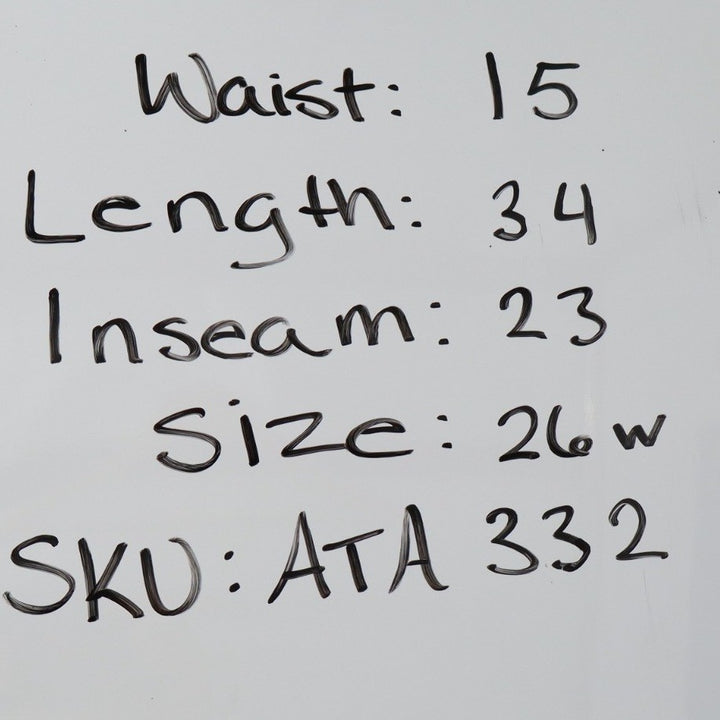 Waist: 15
Length: 34
Inseam: 23
Size: 26w
SKU: ATA 332